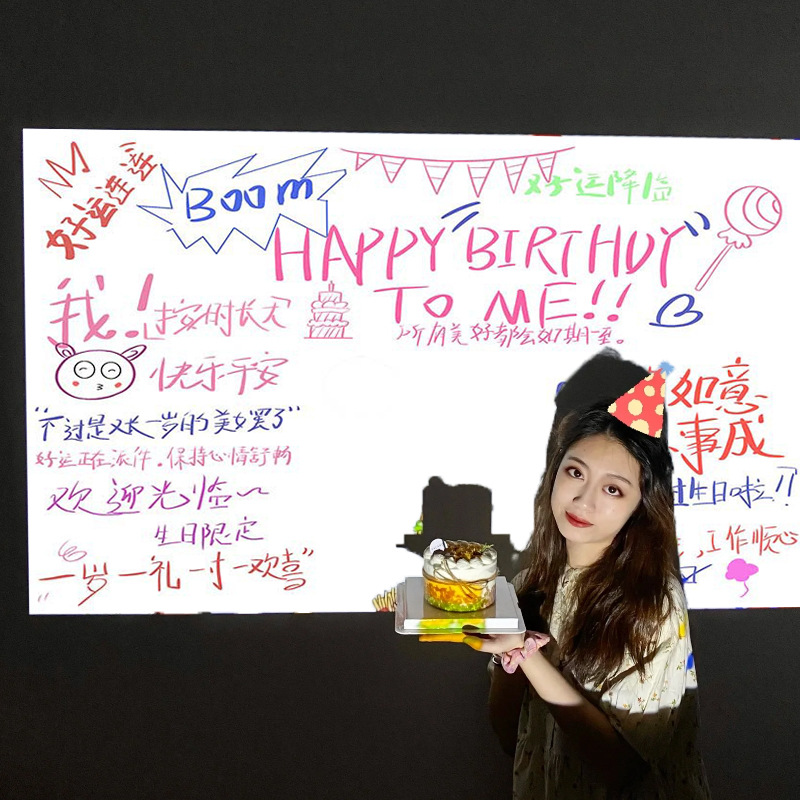 好运连连
Boom
好运降临
HAPPY BIRTHDY
TO ME!!
所有美好都会如期一至。
我！按时长大
快乐平安
"不过是又长一岁的美女罢了"
好运正在派件。保持心情舒畅
欢迎光临~
生日限定
"一岁一礼一寸一欢喜"
如意
事成
过生日啦!!
工作顺心